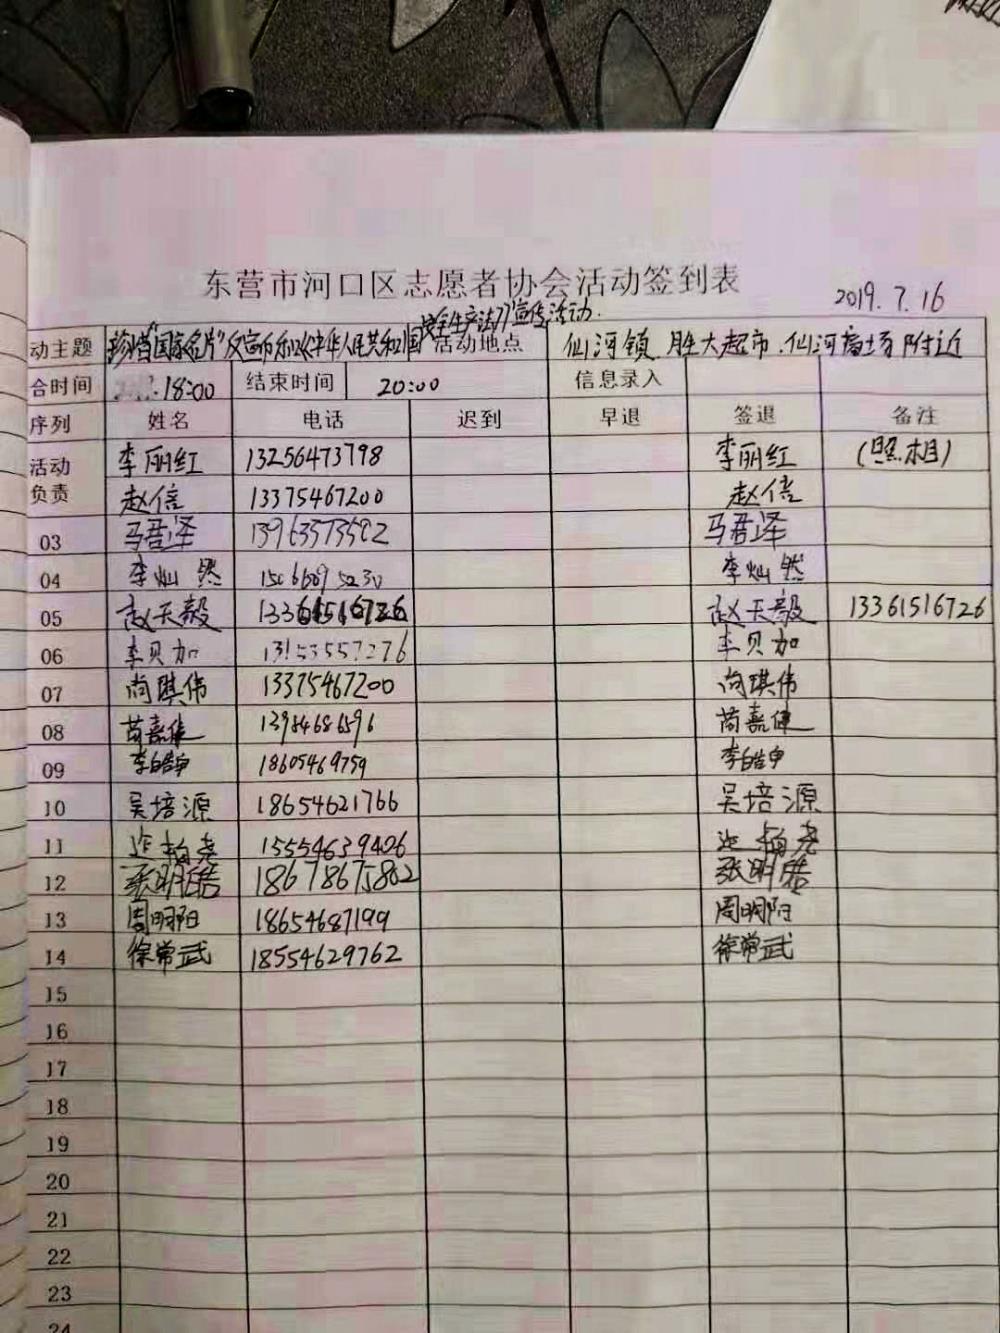 东营市河口区志愿者协会活动签到表
2019.7.16
安全生产法》宣传活动.
动主题 珍惜"国家名片"反宣币和《中华人民共和国 活动地点 仙河镇.胜大超市.仙河广场附近
合时间 18:00 结束时间 20:00 信息录入
序列 姓名 电话 迟到 早退 签退 备注
活动负责 李丽红 13256473798 李丽红 (照相)
赵信 13375467200 赵信
03 马君泽 13963573592 马君泽
04 李灿然 李灿然
05 赵天毅 13361516726 赵天毅 13361516726
06 李贝加 李贝加
07 尚琪伟 13375467200 尚琪伟
08 苘嘉健 苘嘉健
09 李皓申 18605469759 李皓申
10 吴培源 18654621766 吴培源
11 15554639426
12 张明皓 18678675862 张明皓
13 周明阳 18654687199 周明阳
14 徐常武 18554629762 徐常武
15
16
17
18
19
20
21
22
23
24